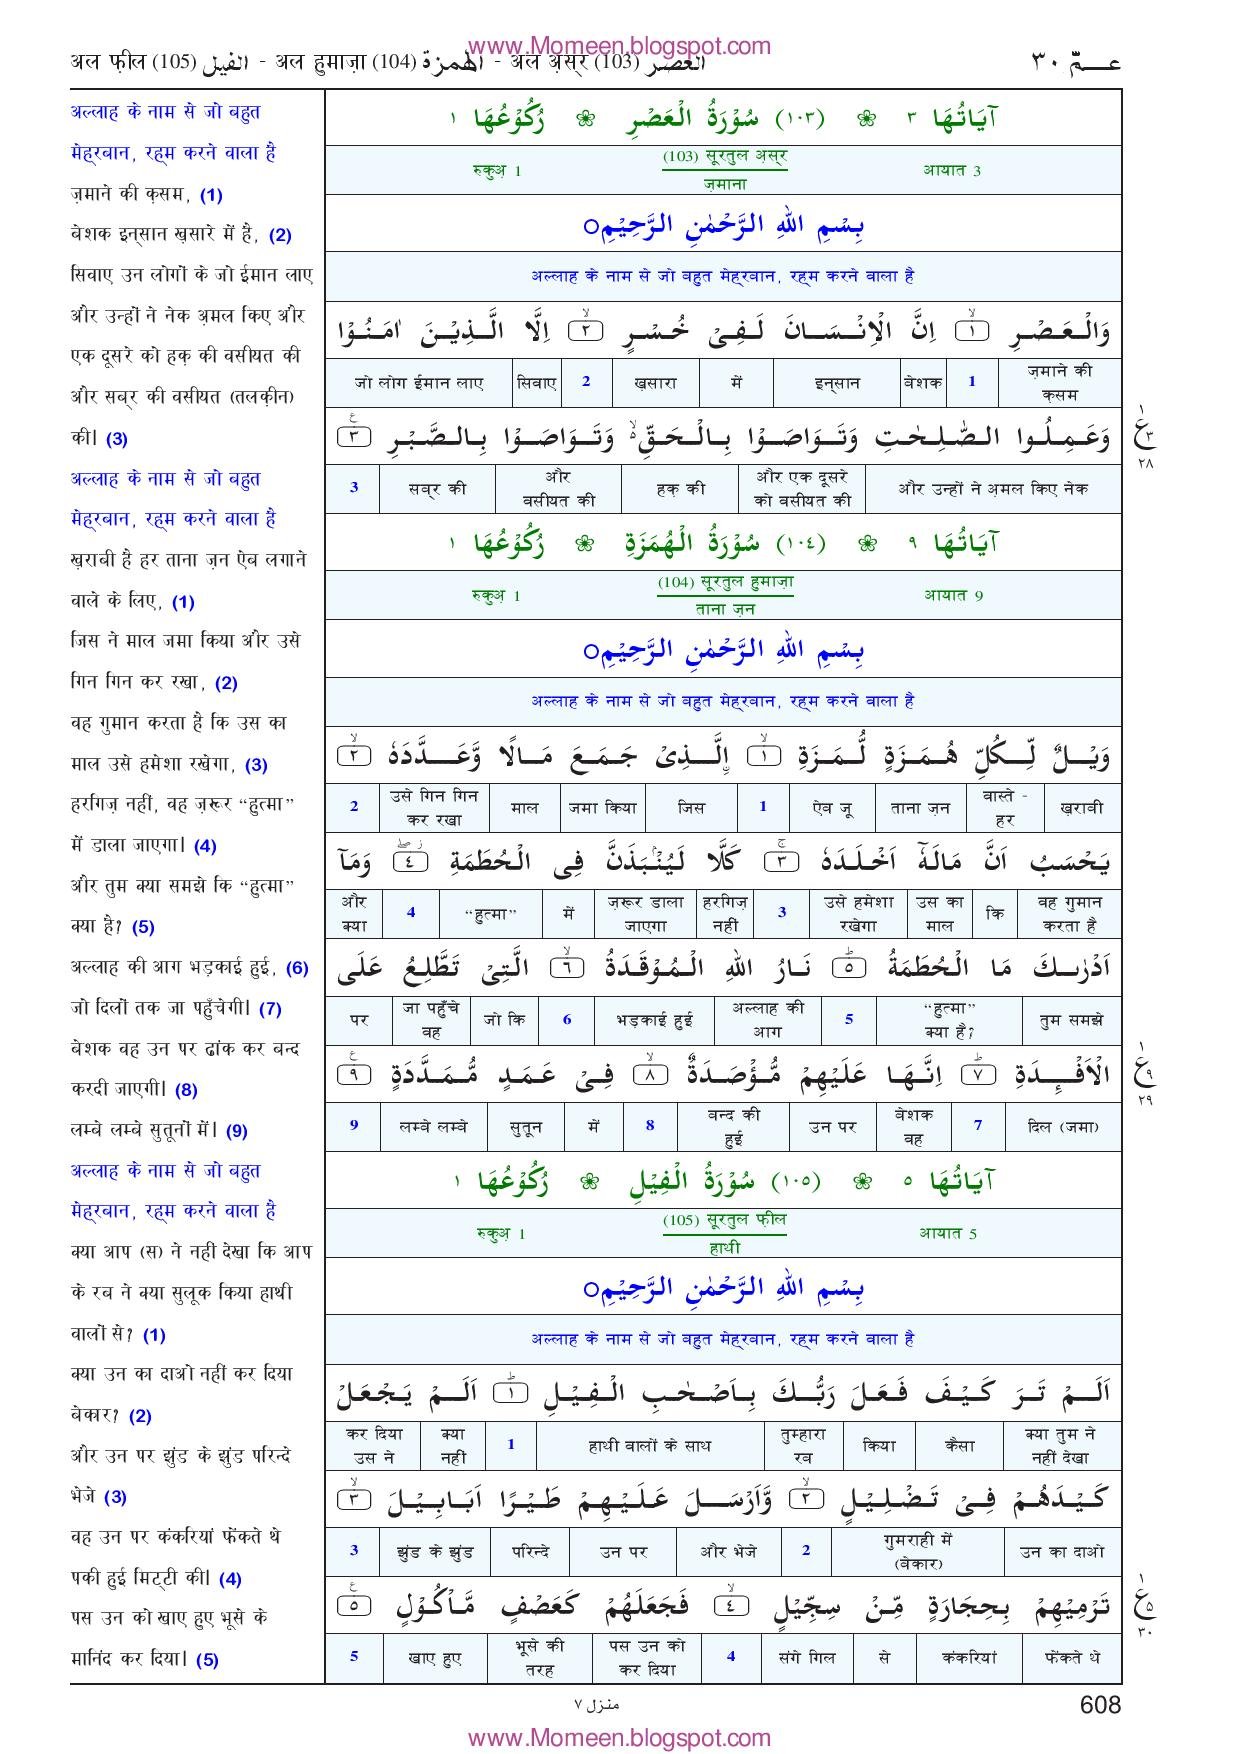 www.Momeen.blogspot.com
अल फ़ील (105) الفيل - अल हुमाज़ा (104) الهمزة - अल अ़स्र (103) العصر
عـمّ ٣٠
अल्लाह के नाम से जो बहुत
मेह्‌रबान, रह्‌म करने वाला है
ज़माने की क़सम, (1)
बेशक इन्सान ख़सारे में है, (2)
सिवाए उन लोगों के जो ईमान लाए
और उन्हों ने नेक अ़मल किए और
एक दूसरे को हक़ की वसीयत की
और सब्र की वसीयत (तलक़ीन)
की। (3)
अल्लाह के नाम से जो बहुत
मेह्‌रबान, रह्‌म करने वाला है
ख़राबी है हर ताना ज़न ऐब लगाने
वाले के लिए, (1)
जिस ने माल जमा किया और उसे
गिन गिन कर रखा, (2)
वह गुमान करता है कि उस का
माल उसे हमेशा रखेगा, (3)
हरगिज़ नहीं, वह ज़रूर “हुत्मा”
में डाला जाएगा। (4)
और तुम क्या समझे कि “हुत्मा”
क्या है? (5)
अल्लाह की आग भड़काई हुई, (6)
जो दिलों तक जा पहुँचेगी। (7)
बेशक वह उन पर ढांक कर बन्द
करदी जाएगी। (8)
लम्बे लम्बे सुतूनों में। (9)
अल्लाह के नाम से जो बहुत
मेह्‌रबान, रह्‌म करने वाला है
क्या आप (स) ने नहीं देखा कि आप
के रब ने क्या सुलूक किया हाथी
वालों से? (1)
क्या उन का दाओ नहीं कर दिया
बेकार? (2)
और उन पर झुंड के झुंड परिन्दे
भेजे (3)
वह उन पर कंकरियां फेंकते थे
पकी हुई मिट्टी की। (4)
पस उन को खाए हुए भूसे के
मानिंद कर दिया। (5)
آيَاتُهَا ٣ ❀ (١٠٣) سُوْرَةُ الْعَصْرِ ❀ رُكُوْعُهَا ١
रुकुअ़ 1 (103) सूरतुल अ़स्र आयात 3
ज़माना
بِسْمِ اللهِ الرَّحْمٰنِ الرَّحِيْمِ○
अल्लाह के नाम से जो बहुत मेह्‌रबान, रह्‌म करने वाला है
وَالْعَصْرِ ۙ﴿١﴾ اِنَّ الْاِنْسَانَ لَفِىْ خُسْرٍ ۙ﴿٢﴾ اِلَّا الَّذِيْنَ اٰمَنُوْا
जो लोग ईमान लाए सिवाए 2 ख़सारा में इन्सान बेशक 1 ज़माने की
क़सम
وَعَمِلُوا الصّٰلِحٰتِ وَتَوَاصَوْا بِالْحَقِّ ۙ وَتَوَاصَوْا بِالصَّبْرِ ﴿٣﴾
3 सब्र की और हक़ की और एक दूसरे और उन्हों ने अ़मल किए नेक
वसीयत की को वसीयत की
ع ١ ٣ ٢٨
آيَاتُهَا ٩ ❀ (١٠٤) سُوْرَةُ الْهُمَزَةِ ❀ رُكُوْعُهَا ١
रुकुअ़ 1 (104) सूरतुल हुमाज़ा आयात 9
ताना ज़न
بِسْمِ اللهِ الرَّحْمٰنِ الرَّحِيْمِ○
अल्लाह के नाम से जो बहुत मेह्‌रबान, रह्‌म करने वाला है
وَيْلٌ لِّكُلِّ هُمَزَةٍ لُّمَزَةِ ۙ﴿١﴾ اِۨلَّذِىْ جَمَعَ مَالًا وَّعَدَّدَهٗ ۙ﴿٢﴾
2 उसे गिन गिन माल जमा किया जिस 1 ऐब जू ताना ज़न वास्ते - ख़राबी
कर रखा हर
يَحْسَبُ اَنَّ مَالَهٗٓ اَخْلَدَهٗ ۚ﴿٣﴾ كَلَّا لَيُنْۢبَذَنَّ فِى الْحُطَمَةِ ﴿٤﴾ وَمَآ
और 4 “हुत्मा” में ज़रूर डाला हरगिज़ 3 उसे हमेशा उस का कि वह गुमान
क्या जाएगा नहीं रखेगा माल करता है
اَدْرٰىكَ مَا الْحُطَمَةُ ؕ﴿٥﴾ نَارُ اللهِ الْمُوْقَدَةُ ۙ﴿٦﴾ الَّتِىْ تَطَّلِعُ عَلَى
पर जा पहुँचे जो कि 6 भड़काई हुई अल्लाह की 5 “हुत्मा” तुम समझे
वह आग क्या है?
الْاَفْـِٕدَةِ ؕ﴿٧﴾ اِنَّهَا عَلَيْهِمْ مُّؤْصَدَةٌ ۙ﴿٨﴾ فِىْ عَمَدٍ مُّمَدَّدَةٍ ﴿٩﴾
9 लम्बे लम्बे सुतून में 8 बन्द की उन पर बेशक 7 दिल (जमा)
हुई वह
ع ١ ٩ ٢٩
آيَاتُهَا ٥ ❀ (١٠٥) سُوْرَةُ الْفِيْلِ ❀ رُكُوْعُهَا ١
रुकुअ़ 1 (105) सूरतुल फ़ील आयात 5
हाथी
بِسْمِ اللهِ الرَّحْمٰنِ الرَّحِيْمِ○
अल्लाह के नाम से जो बहुत मेह्‌रबान, रह्‌म करने वाला है
اَلَمْ تَرَ كَيْفَ فَعَلَ رَبُّكَ بِاَصْحٰبِ الْفِيْلِ ؕ﴿١﴾ اَلَمْ يَجْعَلْ
कर दिया क्या 1 हाथी वालों के साथ तुम्हारा किया कैसा क्या तुम ने
उस ने नहीं रब नहीं देखा
كَيْدَهُمْ فِىْ تَضْلِيْلٍ ۙ﴿٢﴾ وَّاَرْسَلَ عَلَيْهِمْ طَيْرًا اَبَابِيْلَ ۙ﴿٣﴾
3 झुंड के झुंड परिन्दे उन पर और भेजे 2 गुमराही में उन का दाओ
(बेकार)
تَرْمِيْهِمْ بِحِجَارَةٍ مِّنْ سِجِّيْلٍ ۙ﴿٤﴾ فَجَعَلَهُمْ كَعَصْفٍ مَّاْكُوْلٍ ﴿٥﴾
5 खाए हुए भूसे की पस उन को 4 संगे गिल से कंकरियां फेंकते थे
तरह कर दिया
ع ١ ٥ ٣٠
منزل ٧
608
www.Momeen.blogspot.com